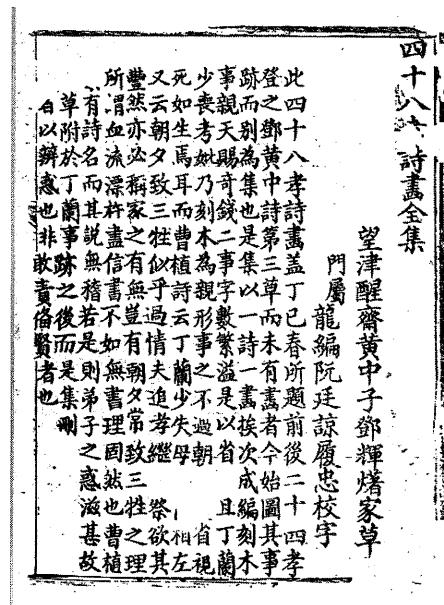 四十八孝詩畫全集
望津醒齋黃中子鄧輝𤏸家草
門屬龍編阮廷諒履忠校字
此四十八孝詩畫蓋丁巳春所題前後二十四孝
登之鄧黃中詩第三草而未有畫者今始圖其事
跡而別為集也是集以一詩一畫挨次成編刻木
事親天賜奇錢二事字數繁溢是以省 且丁蘭
少喪考妣乃刻木為親形事之不過朝 省視
死如生焉耳而曹植詩云丁蘭少失母 相左
又云朝夕致三牲似乎過情夫追孝繼 祭欲其
豐然亦必稱家之有無豈有朝夕常致三牲之理
所謂血流漂杵盡信書不如無書理固然也曹植
有詩名而其說無稽若是則弟子之惑滋甚故
草附於丁蘭事跡之後而是集刪
白以辨惑也非敢責俻賢者也